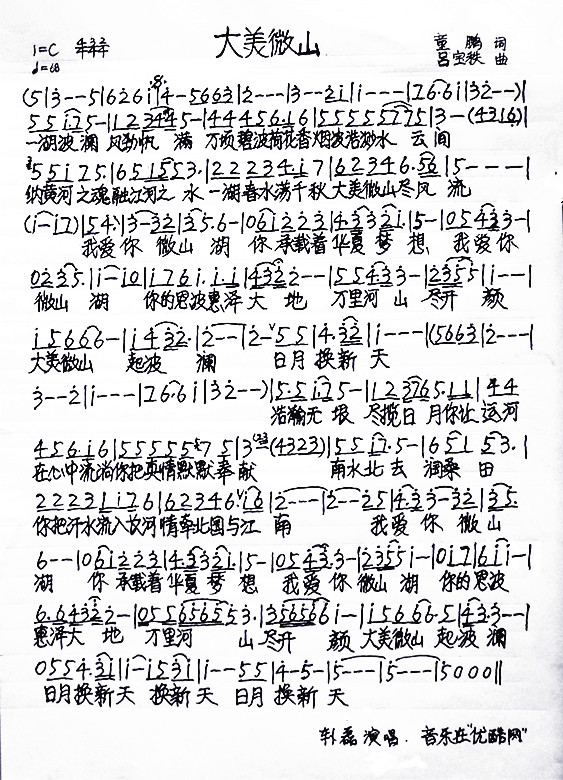 大美微山
1=C
童鹏 词
吕宝秩 曲
(5|3--5|6 2 6 i|4-5 6 6 3|2---|3--2 i|i---|7 6·6 i|3 2--)|
5 5 i 7 5-|1 2 3 4 4 5-|4 4 4 5 6·1 6|5 5 5 5 5 7 7 5|3-(4 3 1 6)|
一湖波澜 风劲帆 满 万顷碧波荷花香烟波浩渺水 云间
5 5 i 7 5·|6 5 1 5 5 3·|2 2 2 3 4·i 7|6 2 3 4 6·5 6|5----|
纳黄河之魂融江河之 水 一湖春水荡千秋大美微山尽风 流
(i-i 7)|5 4·|3-3 2|3 5·6-|0 6 i 2 2 3|4 3 3 2 i·|5-|0 5 4 3 3-|
我爱你 微山 湖 你承载着华夏 梦 想 我爱你
0 2 3 5·|i-i 0|i 7 6 i·i·i|4 3 2 2--|5 5 4 3 3-|2 3 5 5|i---|
微山 湖 你的恩波惠泽大 地 万里河 山 尽开 颜
i 5 6 6 6-|i 4 3 2·|2---|2-5 5|4·3 2|i---|(5 6 6 3|2---|
大美微山 起波 澜 日月 换新 天
3--2|i---|7 6·6 i|3 2--)|5·5 i·7 5-|1 2 3 7 6 5·1 1|4 4
浩瀚无 垠 尽揽日 月你让 运河
4 5 6·i 6|5 5 5 5 5 7 5|3(4 3 2 3)|5 5 i 7·5-|6 5 1 5 3·|
在心中流淌你把真情默默奉献 南水北去 润桑 田
2 2 2 3 1 i 7 6|6 2 3 4 6·i 6|2---|2--2 5|4·3 3-3 2|3 5·
你把汗水流入长河情牵北国与江 南 我爱 你 微山
6--|0 6 i 2 2 3|4 3 3 2 i·|5-|0 5 4 3·3-|2 3 5 5 i-|0 i 7|6 i i-|
湖 你 承载着华夏 梦 想 我爱你 微山 湖 你的恩波
6·6 4 3 2 2-|0 5 5 6 5 6 5 5 3·|3 5 6 5 6 6 i-|i 5 6 6 6·5|4 3 3--|
惠泽大 地 万里河 山 尽开 颜 大美微山 起波 澜
0 5 5 4·3 i|i-i 5 3 i|i--5 5|4-5-|5---|5---|5 0 0 0||
日月换新天 换新天 日月 换新 天
演唱. 音乐在"优酷网"